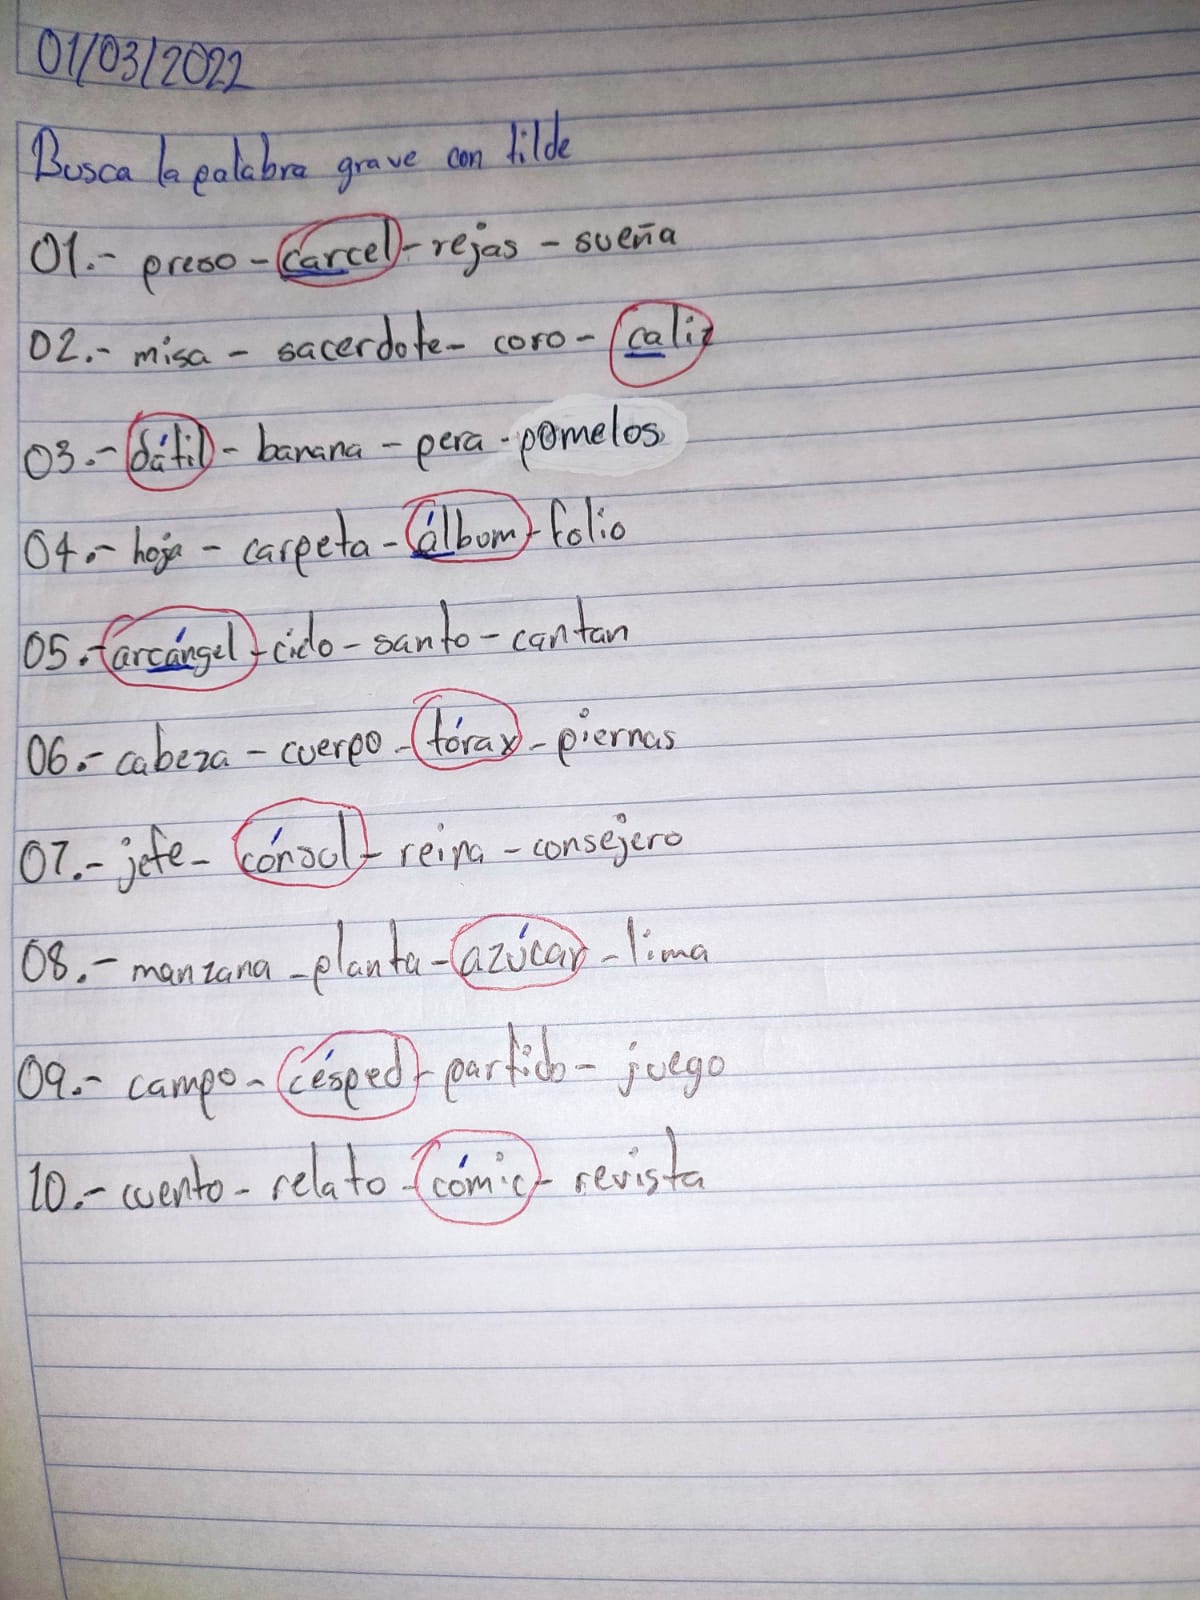 01/03/2022
Busca la palabra grave con tilde
01.- preso - carcel - rejas - sueña
02.- misa - sacerdote - coro - caliz
03.- dátil - banana - pera - pomelos
04.- hoja - carpeta - álbum - folio
05.- arcángel - cielo - santo - cantan
06.- cabeza - cuerpo - tórax - piernas
07.- jefe - cónsul - reina - consejero
08.- manzana - planta - azúcar - lima
09.- campo - césped - partido - juego
10.- cuento - relato - cómic - revista